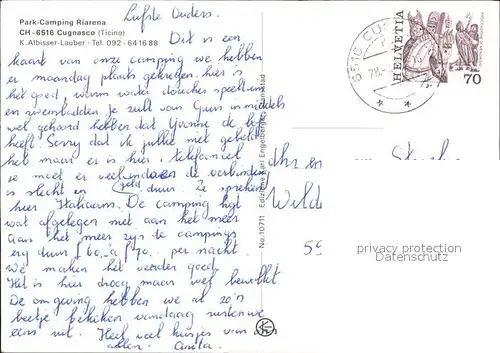 Park-Camping Riarena
CH - 6516 Cugnasco (Ticino)
K. Albisser-Lauber · Tel. 092 - 64 16 88
Liefste Ouders.
Dit is een
kaart van onze camping we hebben
er maandag plaats gekregen. hier is
het goed, warm water douches speeltuin
en zwembaden. Je zult van Guus inmiddels
wel gehoord hebben dat Yvonne de bof
heeft. Sorry dat ik jullie niet gebeld
heb maar er is hier 1 telefooncel
je moet er wachten en de verbinding
is slecht en duur. Ze spreken
hier Italiaans. De camping ligt
wat afgelegen niet aan het meer
Aan het meer zijn de campings
erg duur ƒ 60,- a ƒ 70,- per nacht.
We maken het verder goed.
Het is hier droog maar wel bewolkt
De omgeving hebben we al zo'n
beetje bekeken vandaag rusten we
eens uit. Heel veel kusjes van ons
allen. Anita.
No. 10711 Edizione Carl Engelberger, Stansstad
6516 CUGNASCO
HELVETIA
70
dhr en
Wilde
59
geprüft durch
postcard protection
Datenschutz